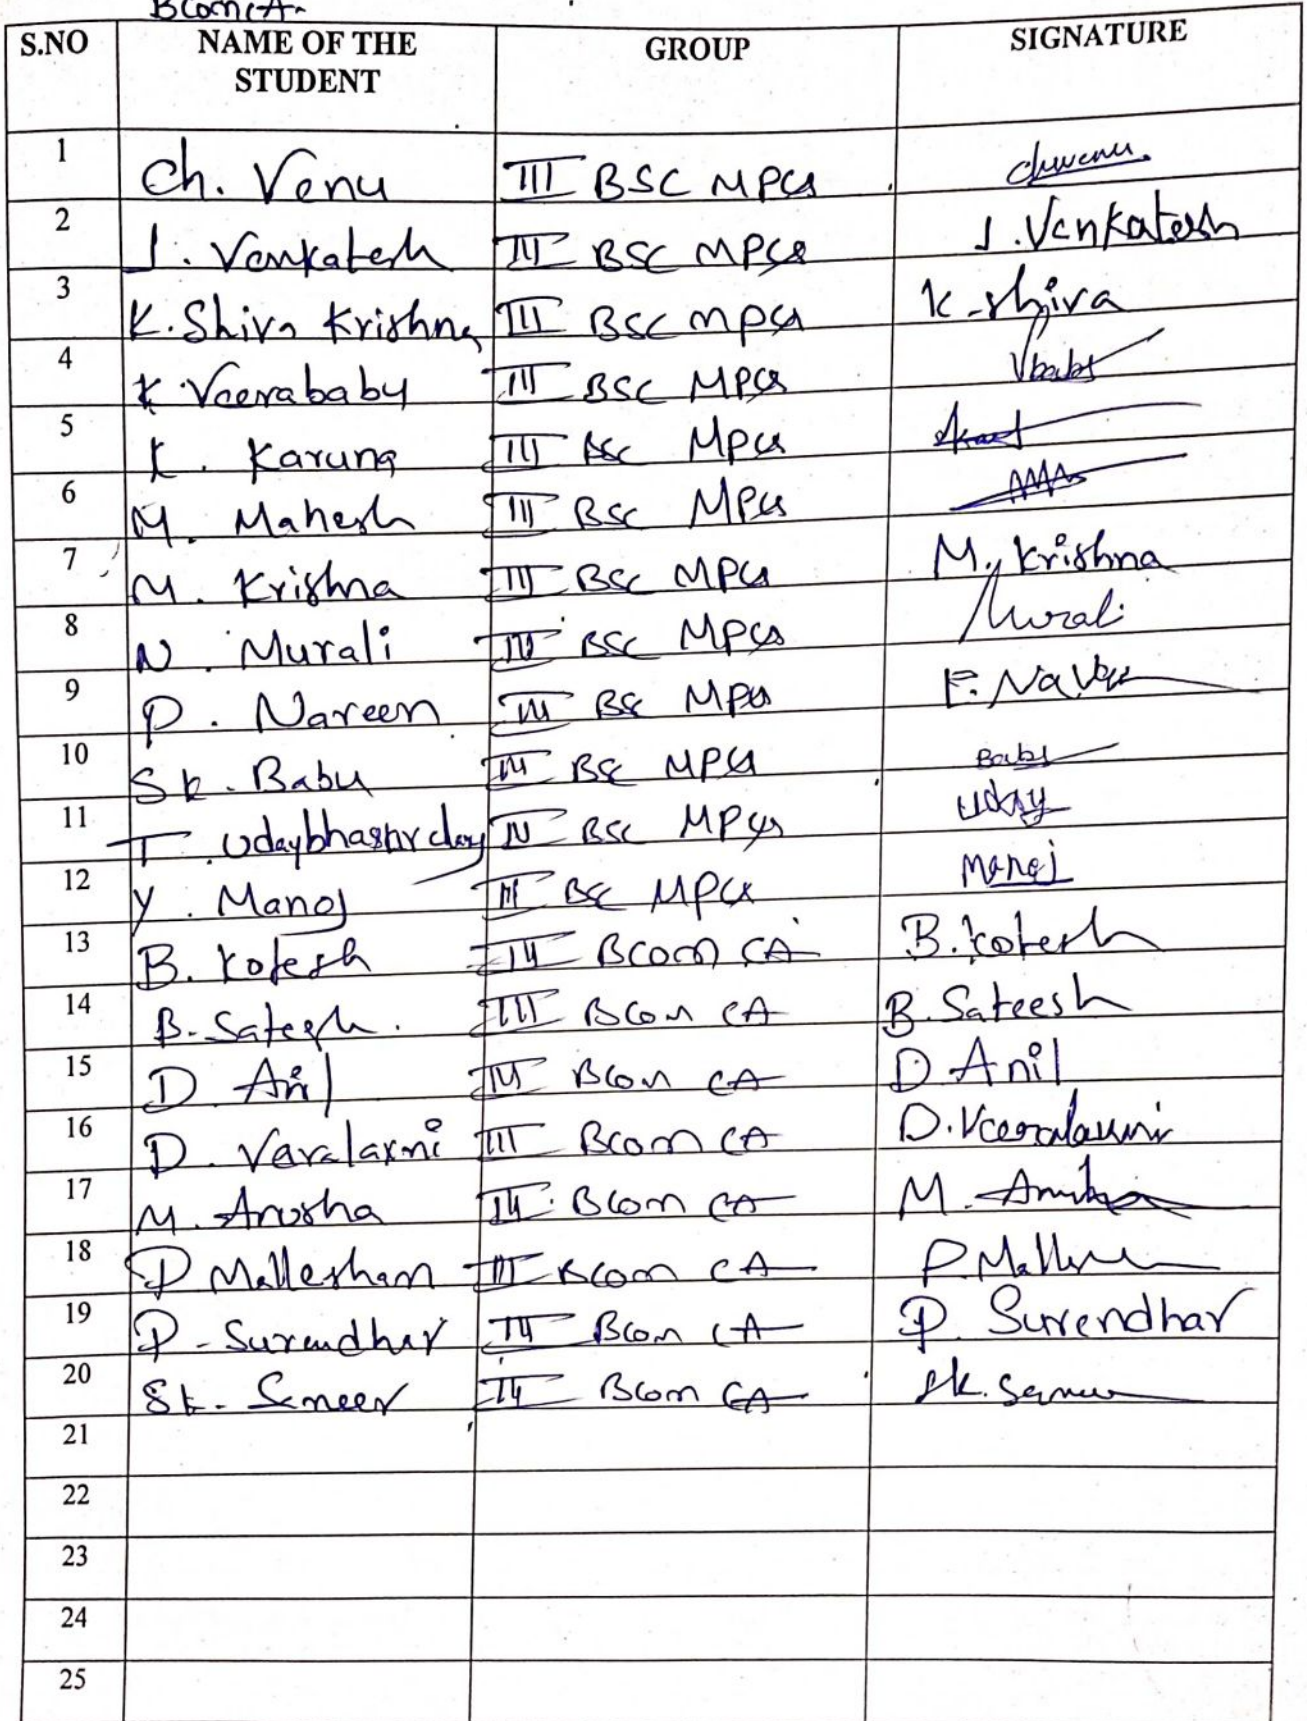 BComCA
S.NO NAME OF THE STUDENT GROUP SIGNATURE
1 Ch. Venu III BSC MPCs chvenu
2 J. Venkatesh III BSC MPCs J. Venkatesh
3 K. Shiva Krishna III BSC MPCs K. Shiva
4 K. Veerababu III BSC MPCs Vbabu
5 K. Karuna III BSC MPCs
6 M. Mahesh III BSC MPCs
7 M. Krishna III BSC MPCs M. Krishna
8 N. Murali III BSC MPCs Murali
9 P. Naveen III BSC MPCs P. Naveen
10 Sk. Babu III BSC MPCs Babu
11 T. Udaybhaskar III BSC MPCs Uday
12 Y. Manoj III BSC MPCs Manoj
13 B. Kotesh III BCom CA B. Kotesh
14 B. Sateesh. III BCom CA B. Sateesh
15 D Anil III BCom CA D Anil
16 D. Varalaxmi III BCom CA D. Veeralaxmi
17 M. Anusha III BCom CA M. Anusha
18 P Mallesham III BCom CA P. Malle
19 P. Surendhar III BCom CA P. Surendhar
20 Sk. Sameer III BCom CA Sk. Sameer
21
22
23
24
25